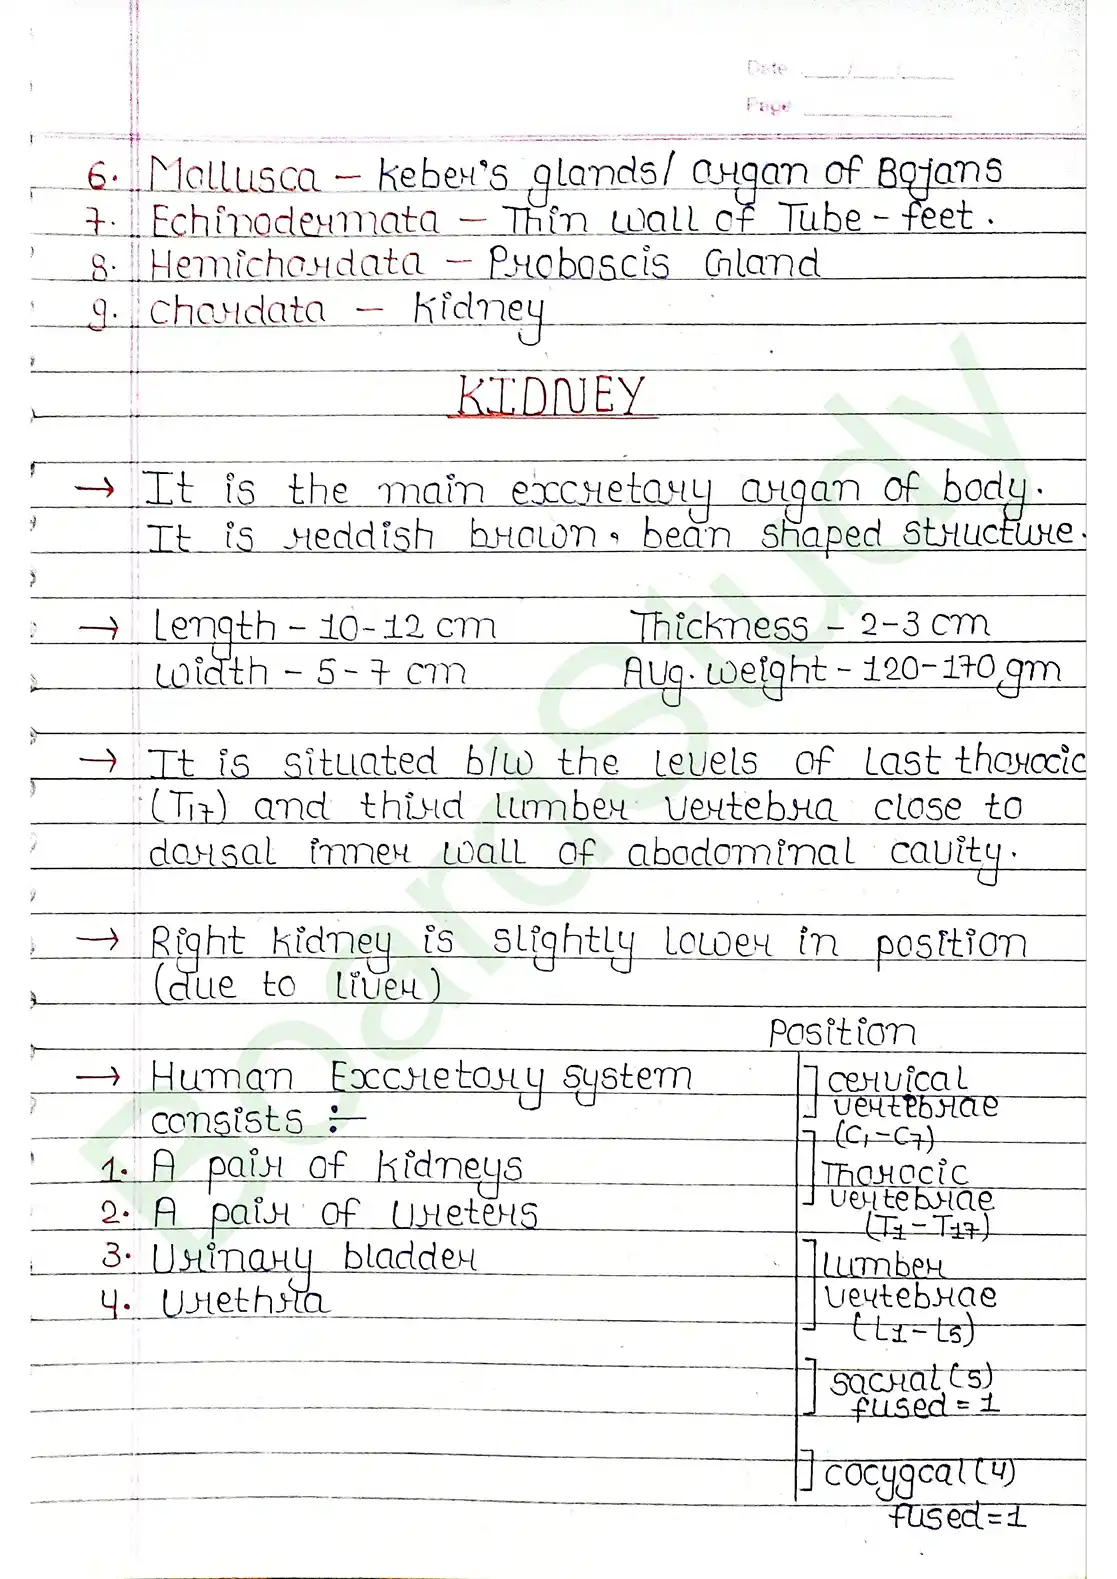 Date ___/___/___
Page ___
6. Mollusca – Keber's glands/ organ of Bojans
7. Echinodermata – Thin wall of Tube-feet.
8. Hemichordata – Proboscis Gland
9. Chordata – Kidney
KIDNEY
→ It is the main excretory organ of body.
It is reddish brown, bean shaped structure.
→ Length – 10-12 cm Thickness – 2-3 cm
Width – 5-7 cm Avg. weight – 120-170 gm
→ It is situated b/w the levels of last thoracic
(T17) and third lumber vertebra close to
dorsal inner wall of abodominal cavity.
→ Right kidney is slightly lower in position
(due to liver)
Position
→ Human Excretory system
consists :–
1. A pair of kidneys
2. A pair of Ureters
3. Urinary bladder
4. Urethra
cervical
vertebrae
(C1–C7)
Thoracic
vertebrae
(T1–T17)
lumber
vertebrae
(L1–L5)
sacral (5)
fused = 1
cocygcal (4)
fused = 1
BoardStudy